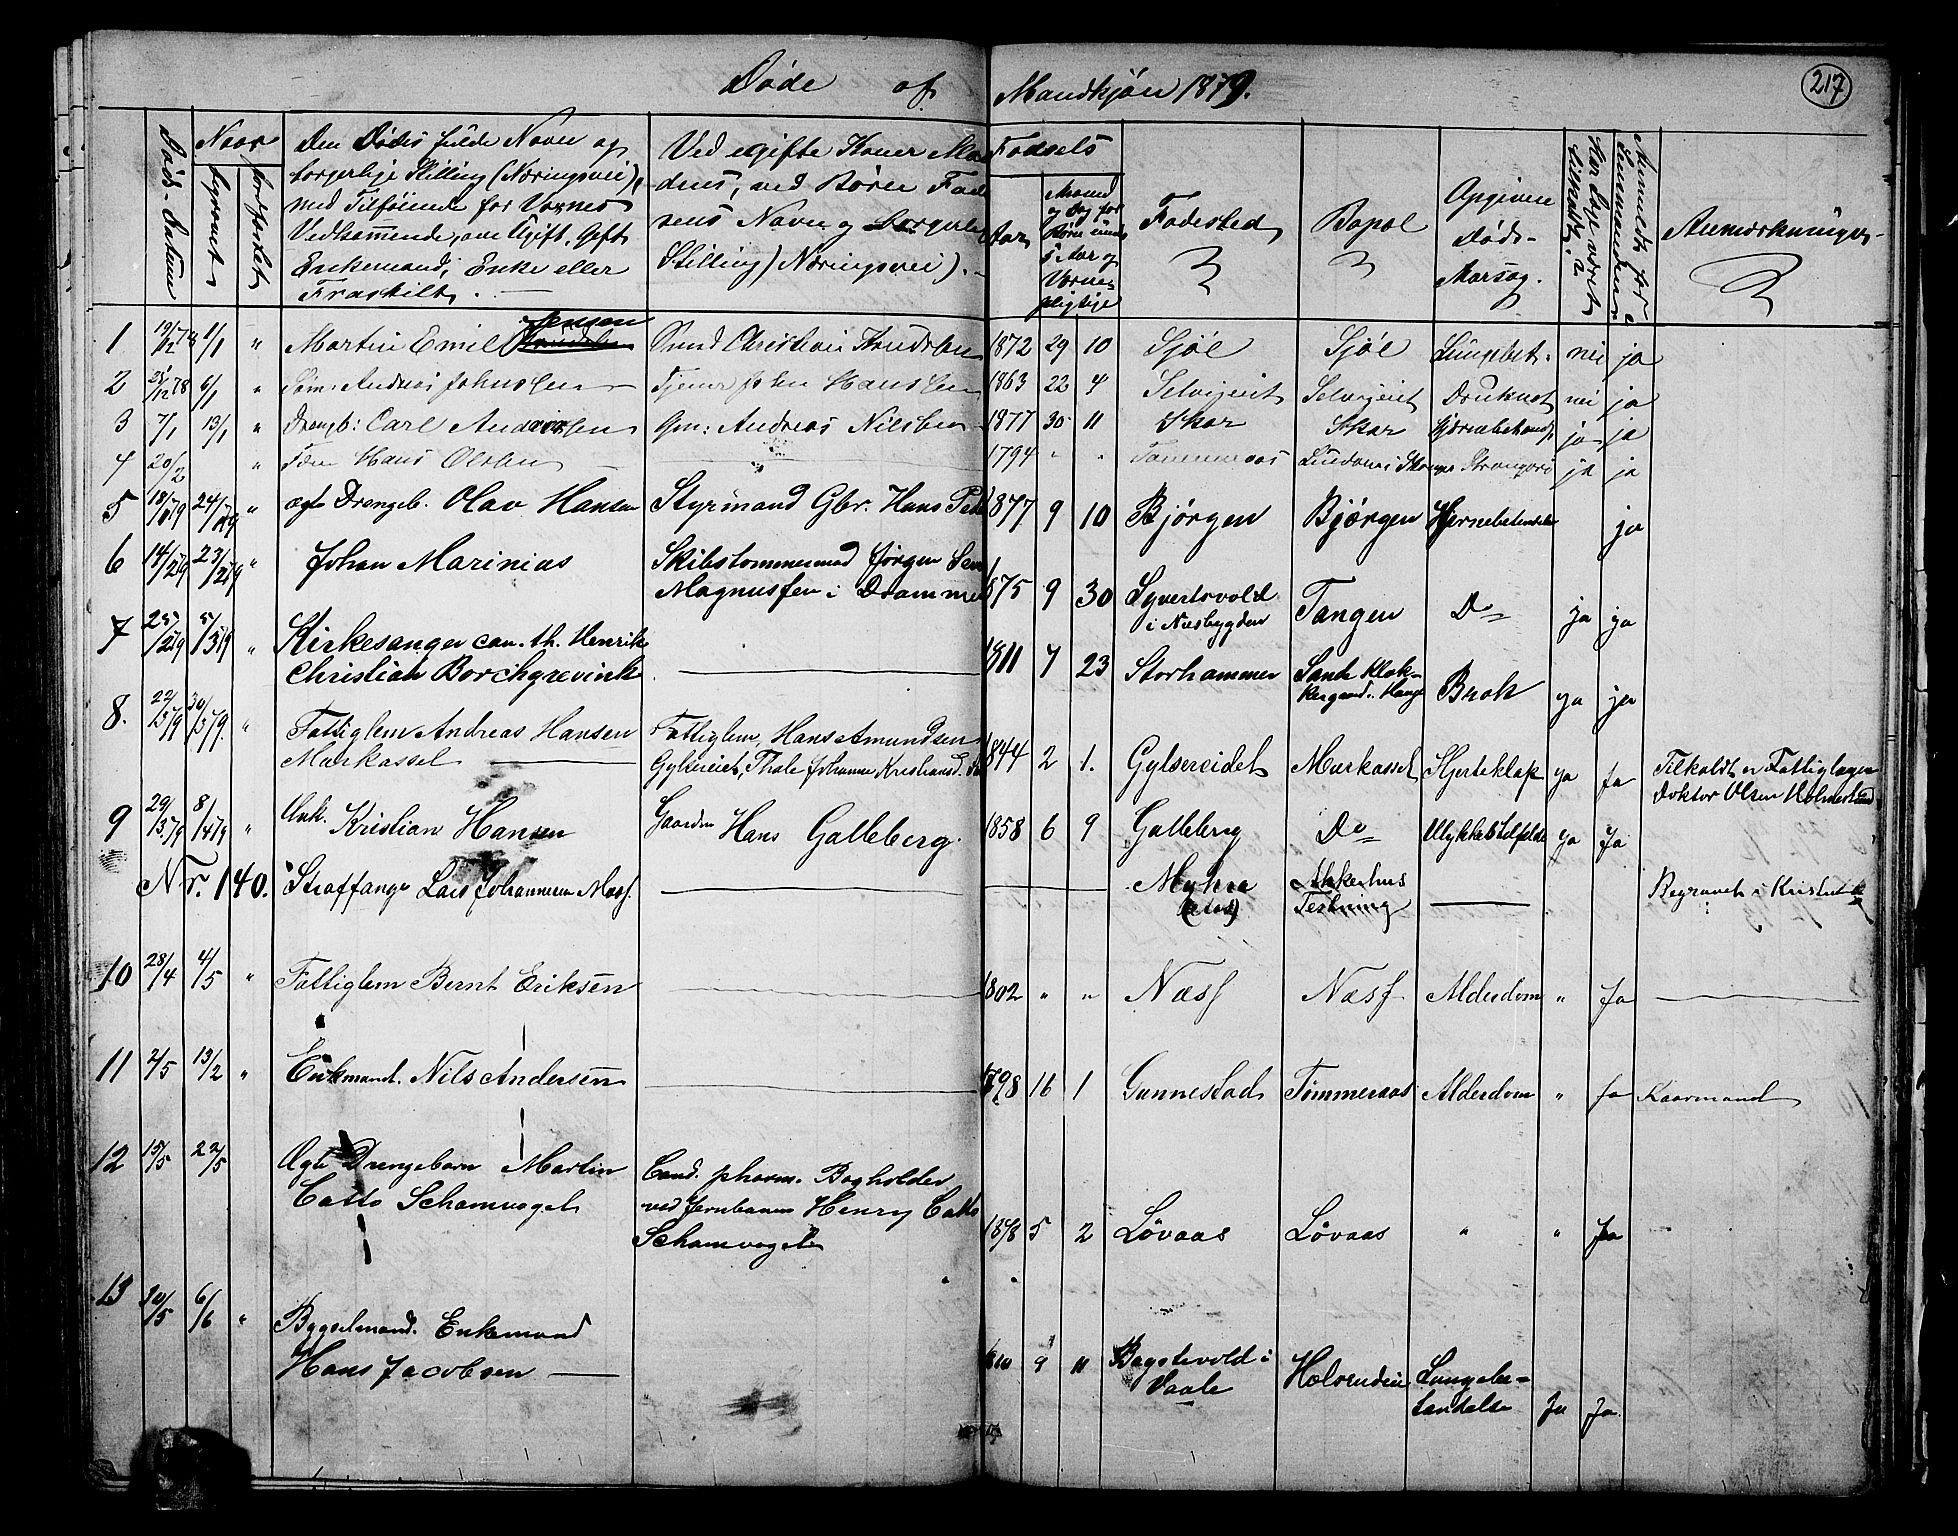 Døde af Mandkjön 1879.
217
Døds-Datum
Naar
begravet
jordfæstet
Den Dødes fulde Navn og
borgerlige Stilling (Næringsvei),
med Tilføiende for Voxnes
Vedkommende, om Ugift, Gift
Enkemand, Enke eller
Fraskilt.
Ved ugifte Koner Man-
dens, ved Børn Fade-
rens Navn og borgerlig
Stilling (Næringsvei).
Fødsels
Aar
Maaned
og Dag for
Børn under
5 Aar og
Værne-
pligtige
Fødested
Bopæl
Opgiven
Døds-
Aarsag.
Har Læge været
tilkaldt?
Anmeldt for
Lensmanden?
Anmærkninger
1 19/12 78 1/1 " Martin Emil Jensen Smed Christian Knudsen 1872 29 10 Sjøl Sjøl Lungebet. nei ja
2 25/12 78 6/1 " Søm. Andreas Johnsen Tjener John Hansen 1863 22 4 Selvigeiet Selvigeiet Druknet nei ja
3 7/1 13/1 " Drengb: Carl Andersen Gm: Andreas Nilsen 1877 30 11 Skar Skar Hjernebetænd. ja ja
4 20/2 " Tøm Hans Olsen 1794 " " Tømmeraas ja ja
5 18/1 79 24/1 79 " ægte Drengeb. Olav Hansen Styrmand Gbr. Hans Ped 1877 9 10 Bjørgen Bjørgen Hjernebetændelse ja
6 14/2 79 23/2 79 " Johan Marinius Skibstømmermand Jørgen
Magnussen i Drammen 1875 9 30 Syvertsvold
i Næsbygden Tangen Do ja ja
7 25/2 79 5/3 79 " Kirkesanger can. th. Henrik
Christian Borchgrevink 1811 7 23 Storhammer Sande Klok-
kergaard Brok ja ja
8. 22/3 79 30/3 79. " Fattiglem Andreas Hansen
Markasset Fattiglem Hans Amundsen
Gylsereiet, Thale Johanne Kristiansd. 1844 2 1. Gylsereidet Markasset Hjerteklap ja ja Tilkaldt er Fattiglægen
Doktor Olsen Holmestrand
9 29/3 79 8/4 79 " Unk. Kristian Hansen Gaardm Hans Galleberg. 1858 6 9 Galleberg Do Ulykkestilfælde ja Ja
Nr. 140. Straffange Lars Johannesen Næss. Myhre
(Næs) Akkershus
Festning Begravet i Krist
10 28/4 4/5 " Fattiglem Bernt Eriksen 1802 " " Næss Næss Alderdom " Ja
11 2/5 13/2 " Enkemand. Nils Andersen 1798 16 1 Gunnestad Tømmeraas Alderdom " Ja Kaarmand
12 15/5 22/5 Ægte Drengebarn Martin
Catto Schamvogel Cand. pharm. Bogholder
ved Jernbanen Henry Catto
Schamvogel 1878 5 2 Løvaas Løvaas " " Ja
13 30/5 6/6 " Bygselmand. Enkemand
Hans Jacobsen 1810 9 11 Bogstevold i
Vaale Holvendien Lungebe-
tændelse Ja Ja